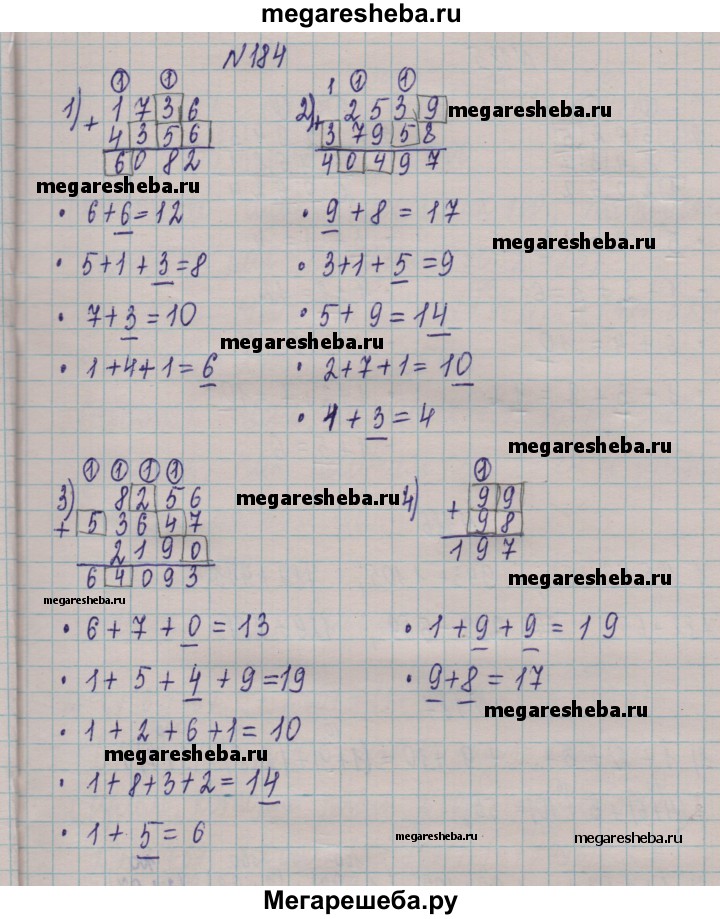 megaresheba.ru
N184
1) ① ①
+ 1736
4356
6082
2) 1 ① ①
+ 2539
37958
40497
megaresheba.ru
megaresheba.ru
• 6+6=12
• 9+8=17
megaresheba.ru
• 5+1+3=8
• 3+1+5=9
• 7+3=10
• 5+9=14
megaresheba.ru
• 1+4+1=6
• 2+7+1=10
• 1+3=4
megaresheba.ru
3) ① ① ① ①
8256
+ 53647
2190
64093
megaresheba.ru
4) ①
+ 99
98
197
megaresheba.ru
megaresheba.ru
• 6+7+0=13
• 1+9+9=19
• 1+5+4+9=19
• 9+8=17
megaresheba.ru
• 1+2+6+1=10
megaresheba.ru
• 1+8+3+2=14
• 1+5=6
megaresheba.ru
megaresheba.ru
Мегарешеба.ру